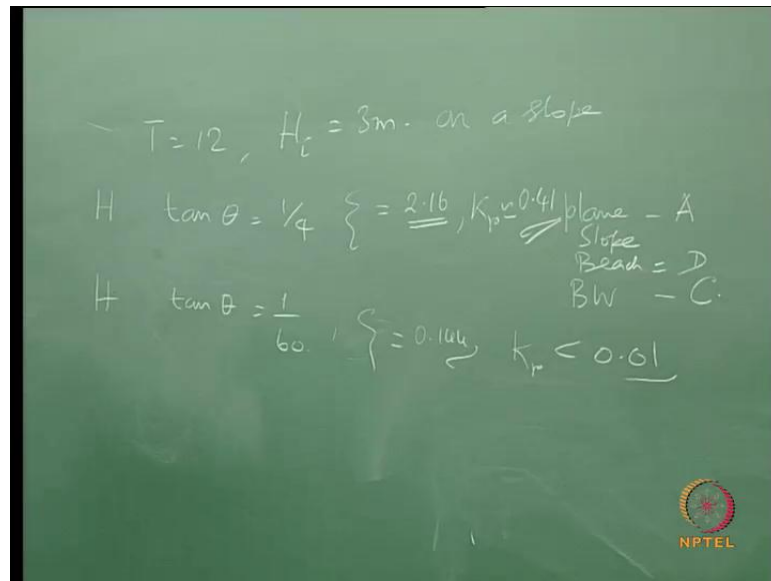 T = 12, Hi = 3m. on a slope
H tan θ = 1/4 ξ = 2.16, Kr ≃ 0.41 plane - A
Slope
Beach = D
BW - C.
H tan θ = 1/60. ξ = 0.144, Kr < 0.01
NPTEL